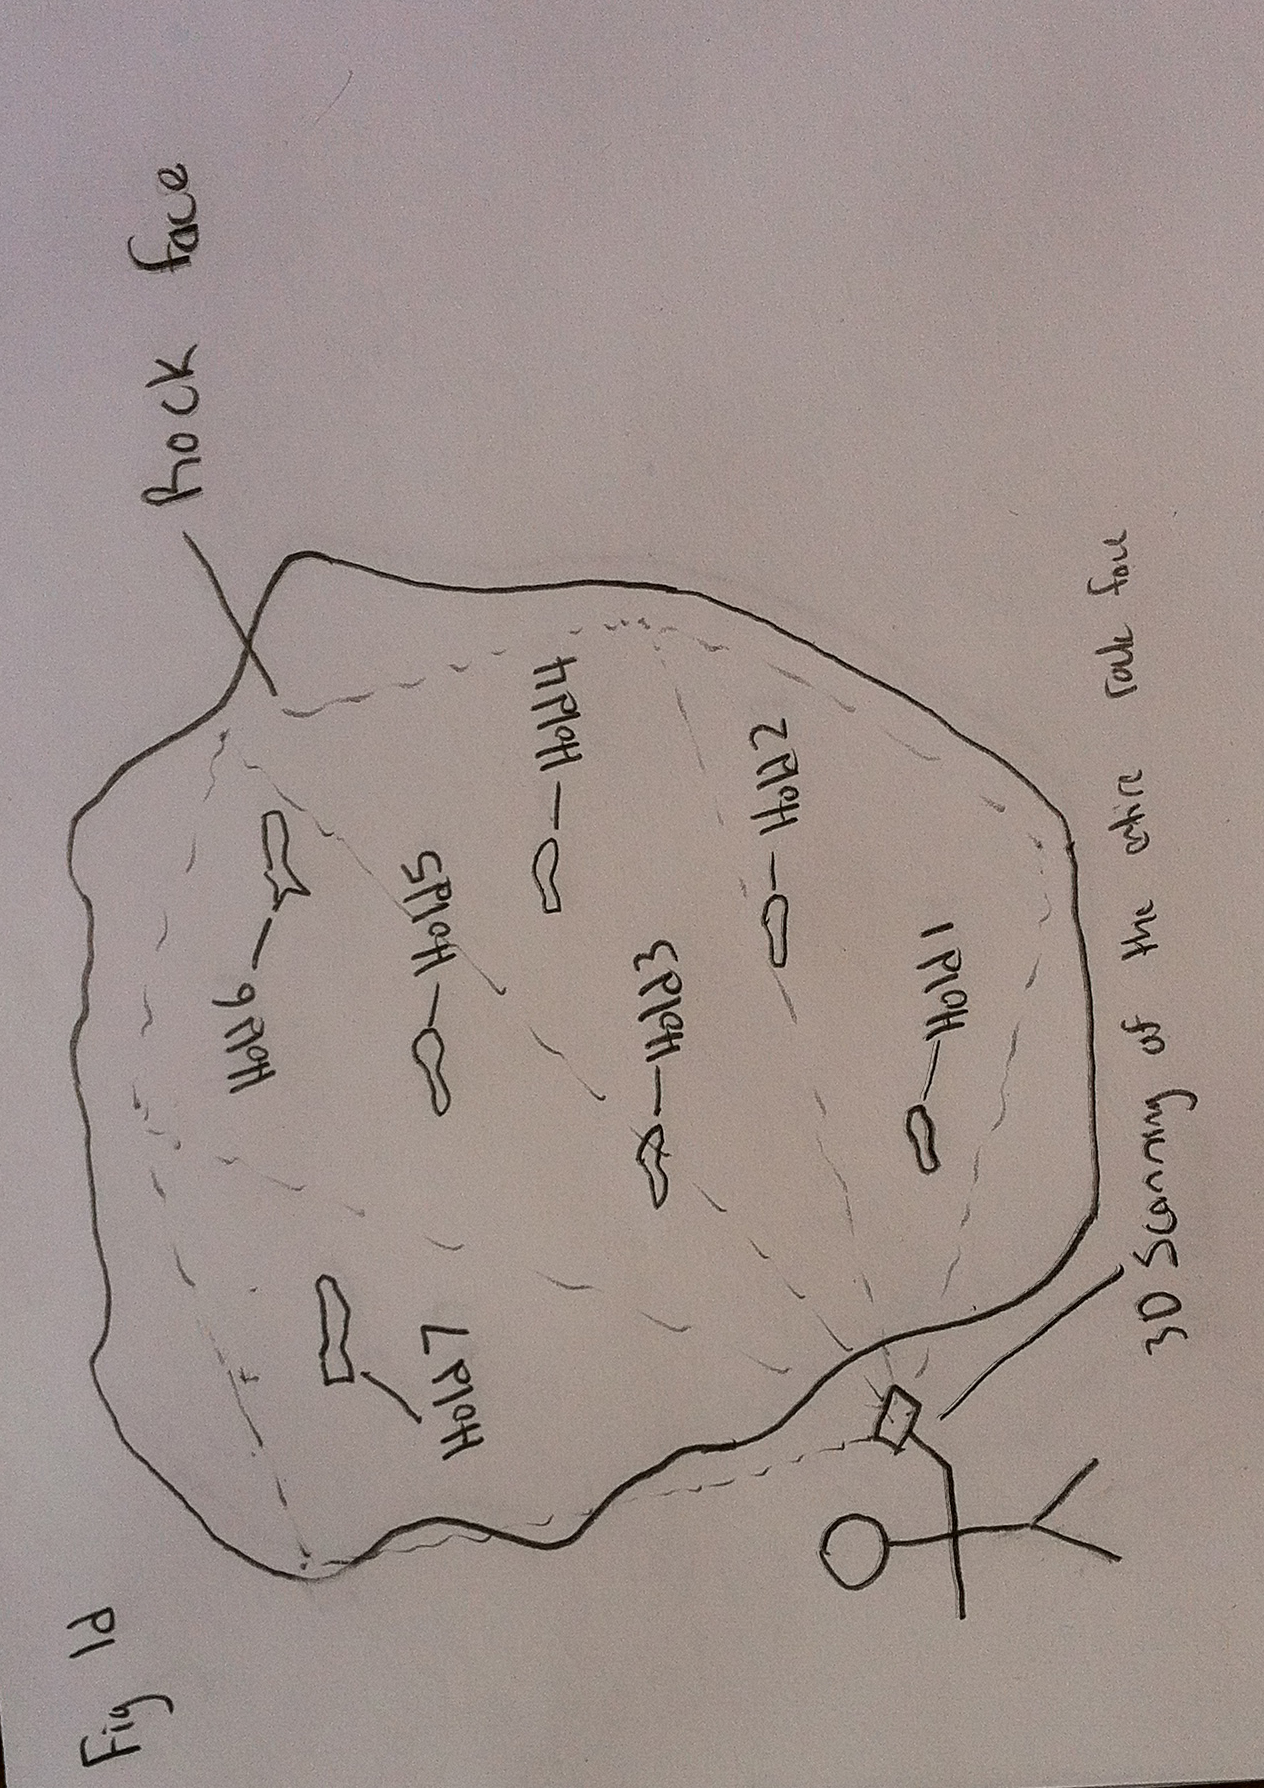 Fig 1d
Rock face
Hold6
Hold7
Hold5
Hold4
Hold3
Hold2
Hold1
3D Scanning of the entire rock face